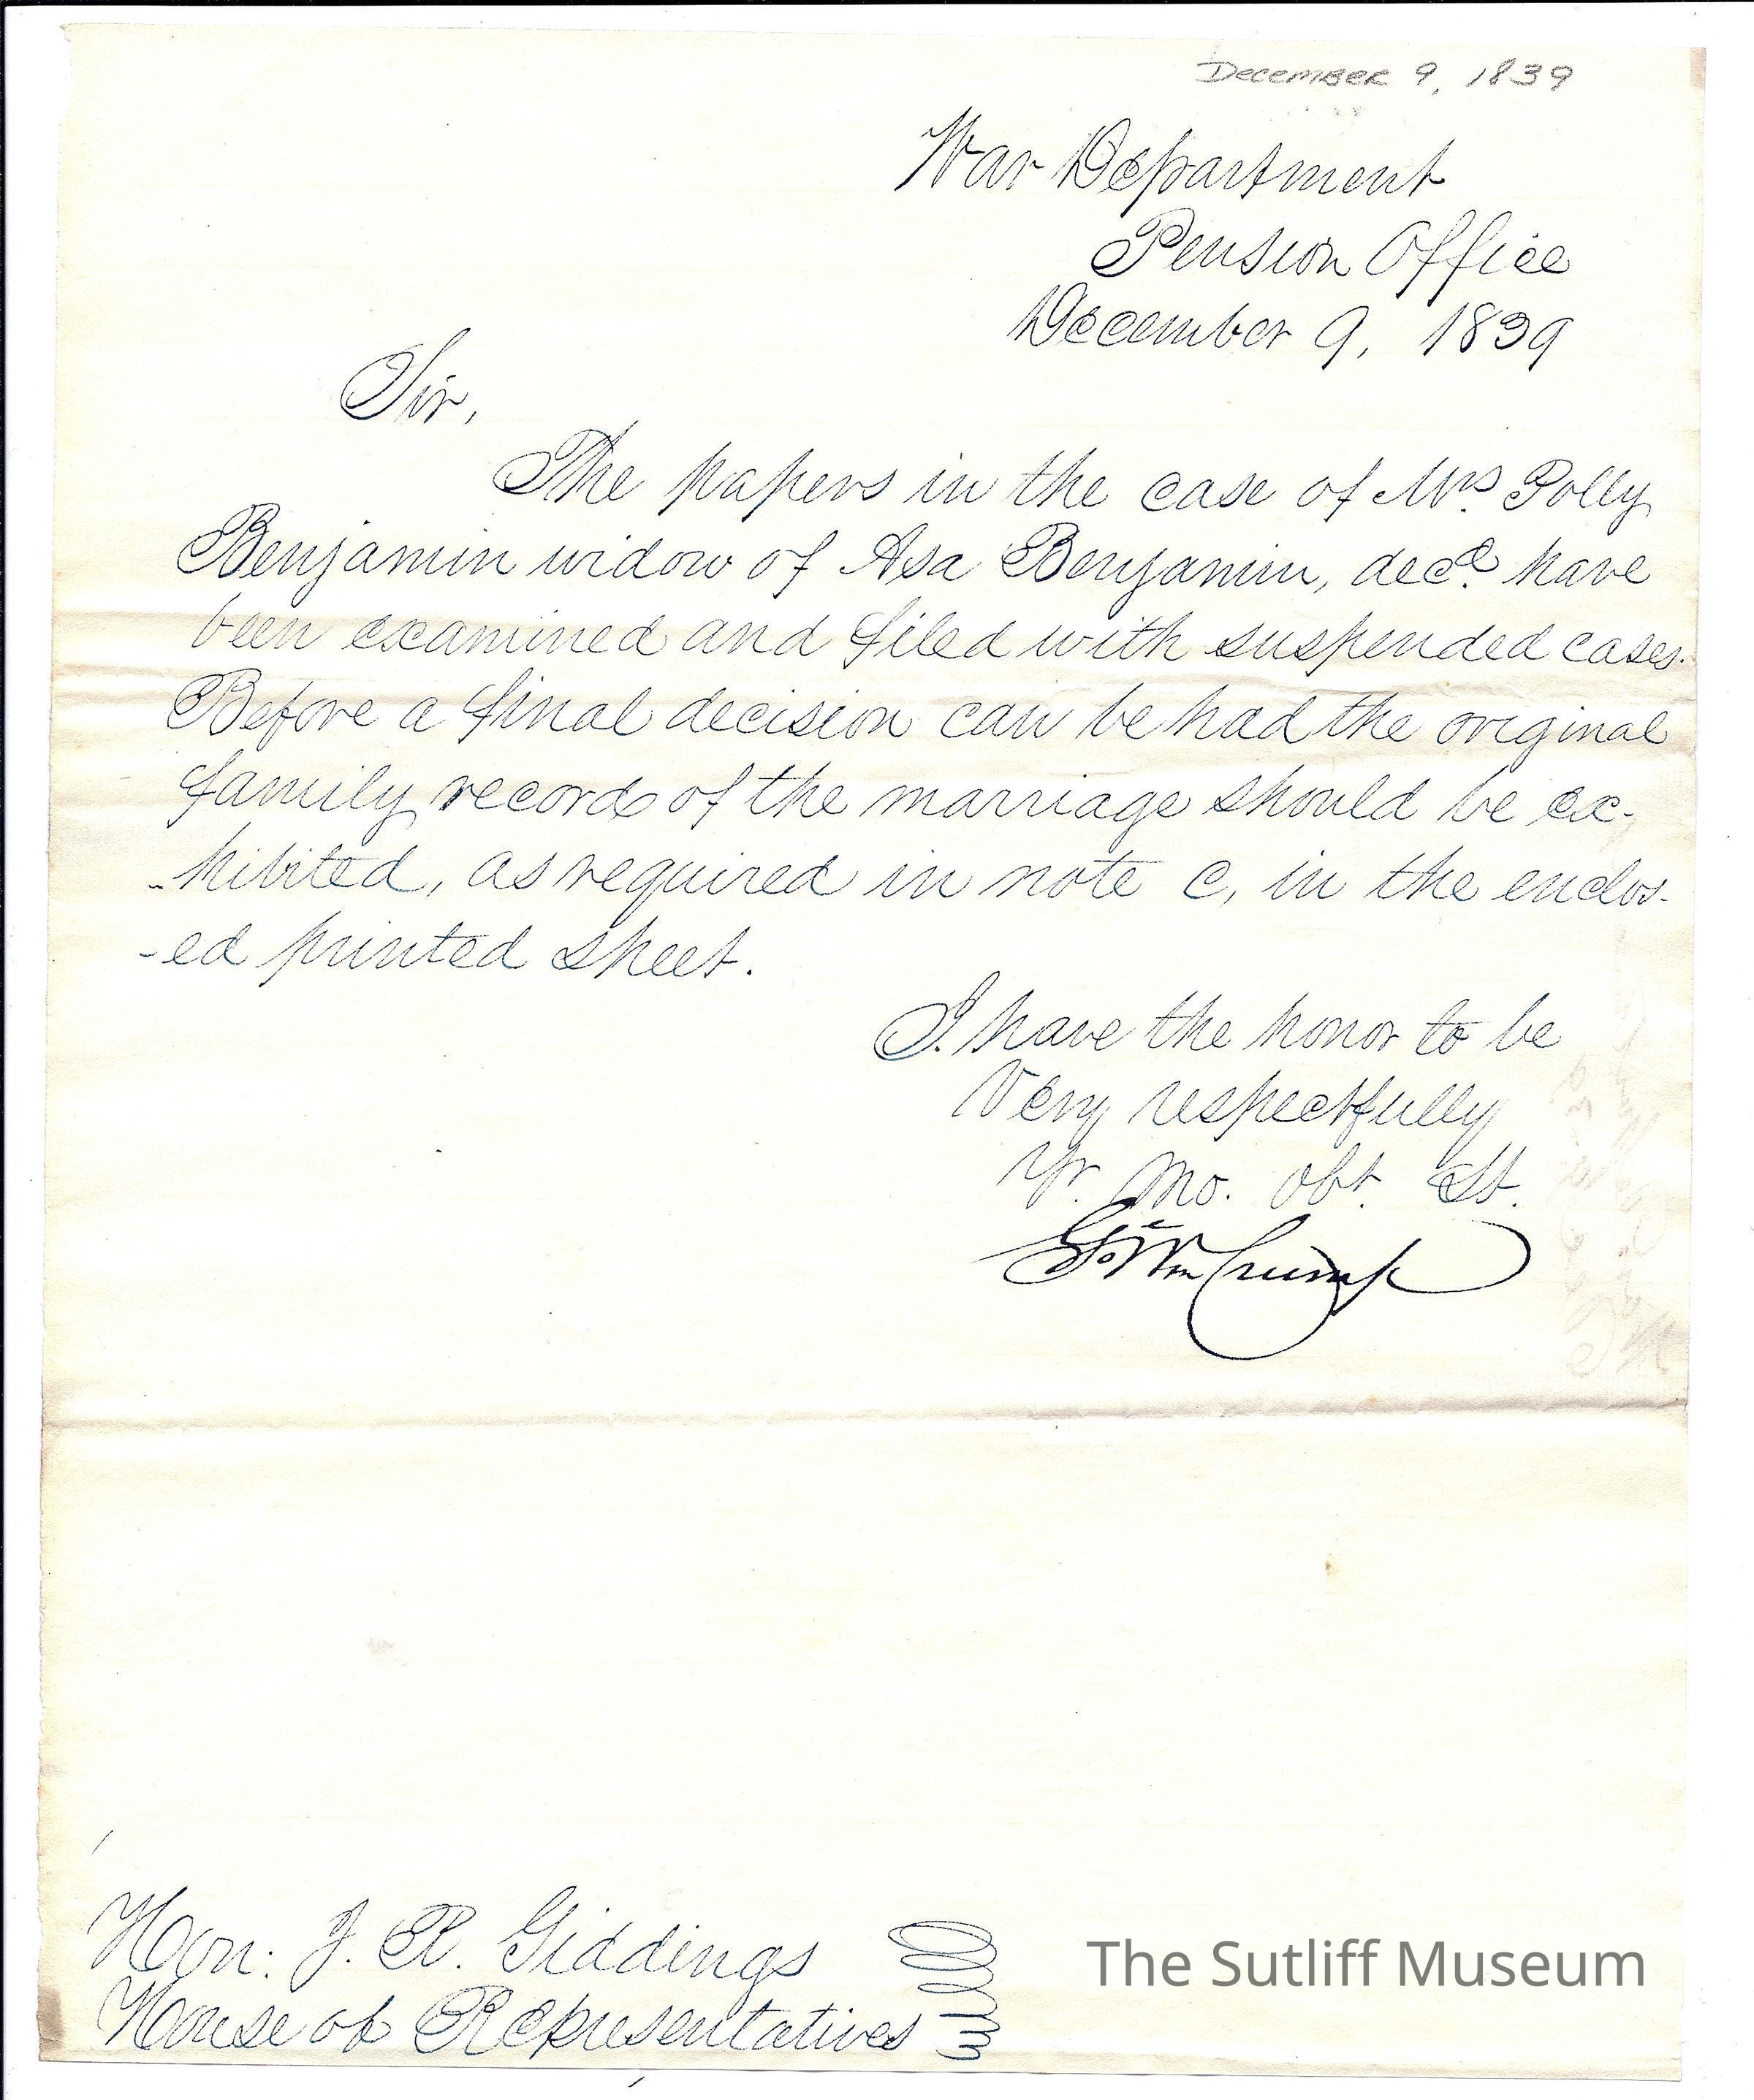 December 9, 1839
War Department
Pension Office
December 9, 1839
Sir,
The papers in the case of Mrs. Polly
Benjamin widow of Asa Benjamin, decd. have
been examined and filed with suspended cases.
Before a final decision can be had the original
family record of the marriage should be ex-
-hibited, as required in note c, in the enclos-
-ed printed sheet.
I have the honor to be
Very respectfully
Yr. Mo. Obt. St.
Geo Wm Crump
Hon: J. R. Giddings
House of Representatives
The Sutliff Museum